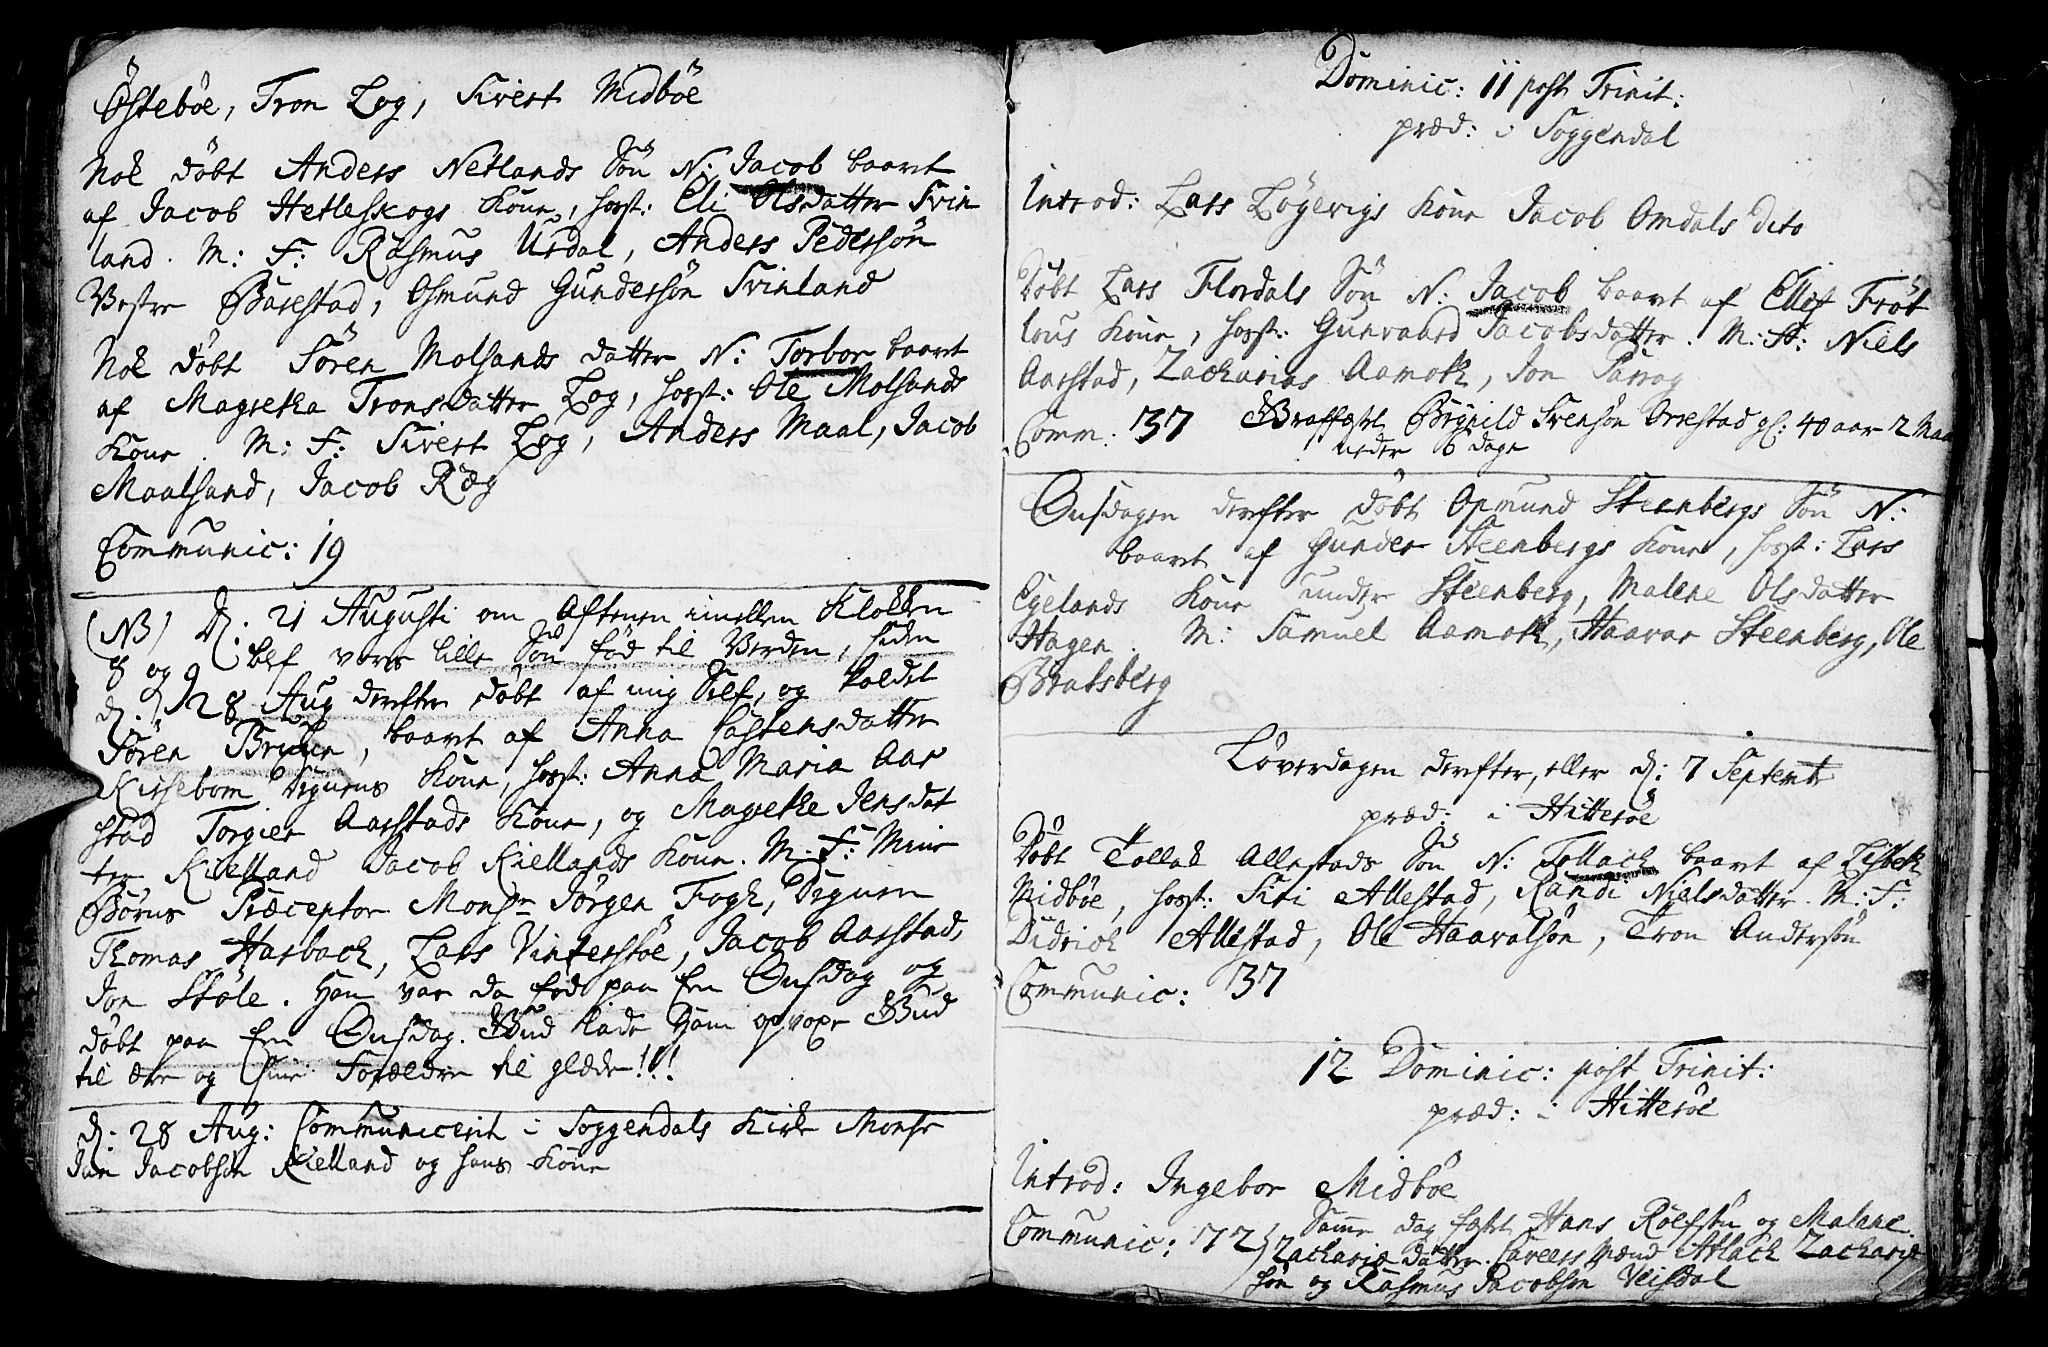 Østebøe, Tron Log, Sivert Midbøe
Nok døbt Anders Netlands Søn N: Jacob baaret
af Jacob Hetleskogs Kone, host: Eli Olsdatter Svin
land. M: F: Rasmus Urdal, Anders Pedersøn
Vestre Barstad, Osmund Gundersøn Svinland
Nok døbt Søren Molsands datter N: Torbor baaret
af Magretha Tronsdatter Log, host: Ole Molsands
Kone. M: F: Sivert Log, Anders Maal, Jacob
Maalsand, Jacob Ræg
Communic: 19
(NB) D: 21 Augusti om Aftenen imellem Klokken
8 og 9 blef vores lille Søn fød til Verden, siden
d: 28 Aug derefter døbt af mig Self, og kaldet
Søren, baaret af Anna Castensdatter
Kirsebom Kone, host: Anna Maria Aar
stad Torgier Aarstads Kone, og Magrethe Jensdat
ter Kielland Jacob Kiellands Kone. M: F: Mine
Børns Præceptor Monsr Jørgen Fogh,
Thomas Harbach, Lars Vintersøe, Jacob Aarstad,
Jon Støle. Han var da fød paa En Onsdag og
døbt paa En Onsdag. Gud lade Ham opvoxe Gud
til ære og Sine Forældre til glæde!!!
d: 28 Aug: Communicerit i Soggendals Kirke Monsr
Jan Jacobsøn Kielland og hans Kone
Dominic: 11 post Trinit:
præd: i Soggendal
Introd: Lars Løgevigs Kone Jacob Omdals dito
Døbt Lars Flordals Søn N: Jacob baaret af Ellef Frøt
lous Kone, host: Gunvaard Jacobsdatter. M: F: Niels
Aarstad, Zacharias Aamoth, Jon
Comm: 37 Graffæst Brynild Svensøn Orrestad gl: 40 aar 2 Maa
neder 6 dage
Onsdagen derefter døbt Osmund Steenbergs Søn N:
baaret af Gunder Steenbergs Kone, host: Lars
Egelands Kone under Steenberg, Malene Olsdatter
Hagen. M: Samuel Aamoth, Haavar Steenberg, Ole
Bratsberg
Løverdagen derefter, eller d: 7 Septemb
præd: i Hitterøe
Døbt Tollak Allestads Søn N: Tollach baaret af Lisbeth
Midbøe, host: Siri Allestad, Randi Nielsdatter. M: F:
Didrich Allestad, Ole Haavalsøn, Tron Andersøn
Communic: 37
12 Dominic: post Trinit:
præd: i Hitterøe
Introd: Ingebor Midbøe
Communic: 72 } Samme dag fæstet Hans Roelfsøn og Malene
Zachariæ datter. Caveers Mænd Atlach Zachariæ
søn og Rasmus Jacobsøn Veisdal